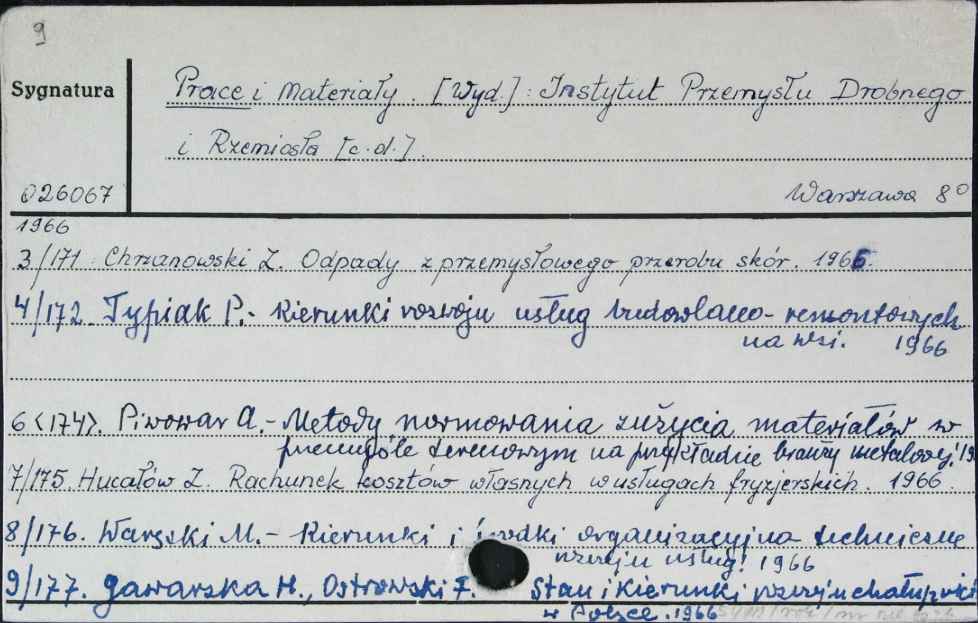 9
Sygnatura
Prace i materiały. [Wyd.]: Instytut Przemysłu Drobnego
i Rzemiosła [c.d.].
026067
Warszawa 8°
1966
3/171 Chrzanowski Z. Odpady z przemysłowego przerobu skór. 1966.
4/172. Typiak P.- Kierunki rozwoju usług budowlano-remontowych
na wsi. 1966
6<174>. Piwowar A.- Metody normowania zużycia materiałów w
przemyśle terenowym na przykładzie branży metalowej.
7/175. Hucałów Z. Rachunek kosztów własnych w usługach fryzjerskich. 1966.
8/176. Warski M.- Kierunki i środki organizacyjno techniczne
rozwoju usług. 1966
9/177. Gawarska H., Ostrowski F. Stan i kierunki rozwoju chałupnictwa
w Polsce. 1966